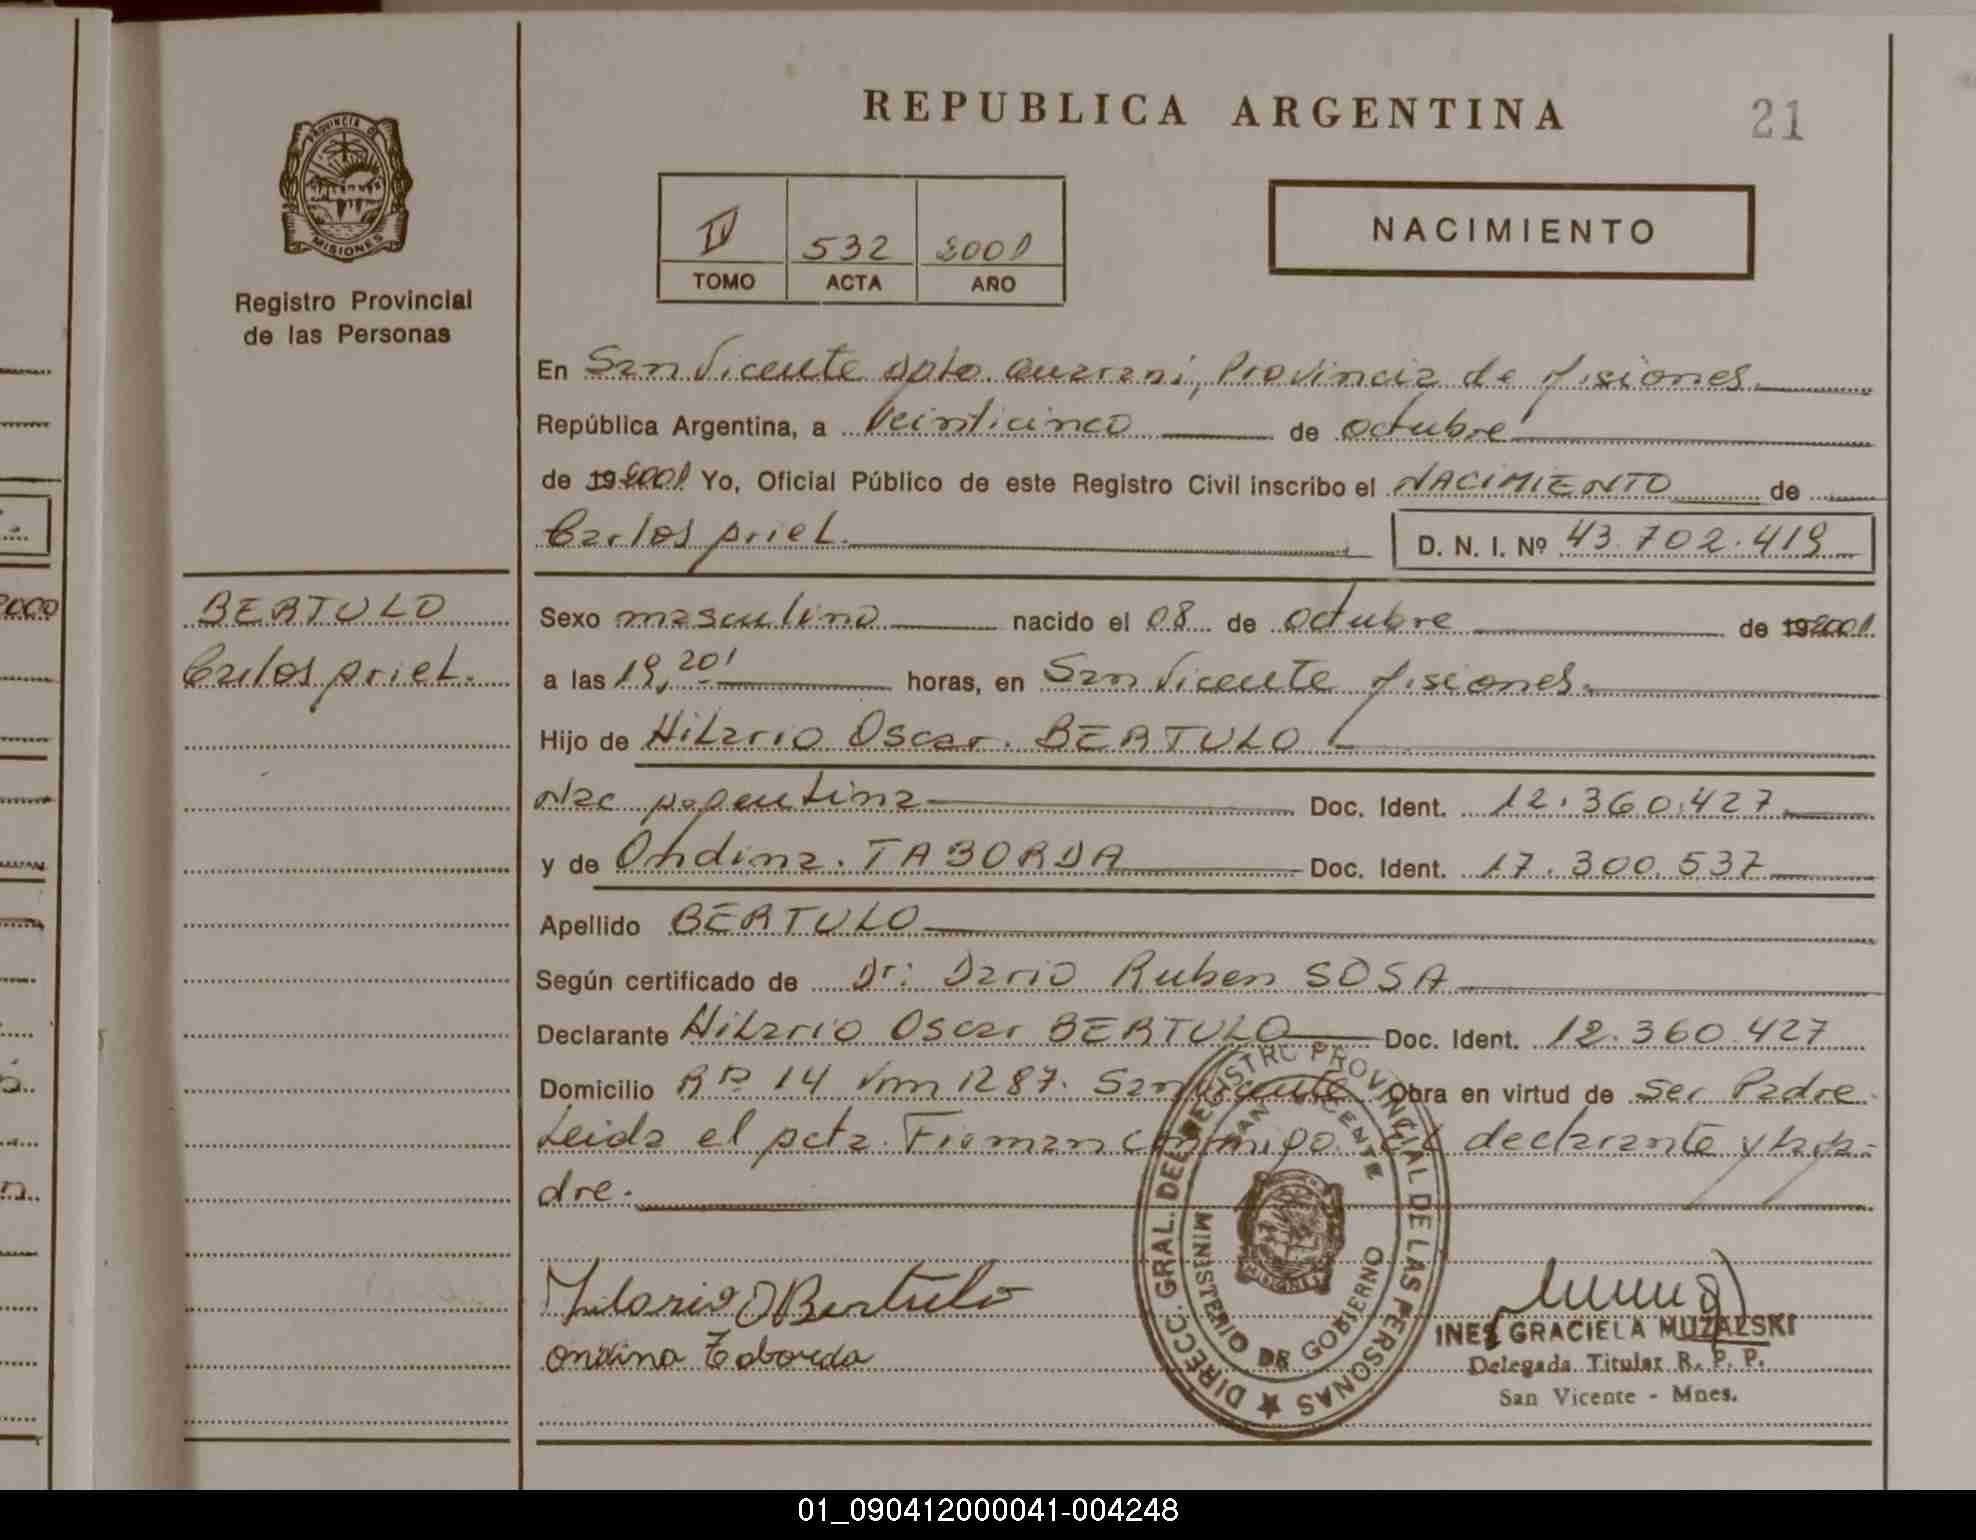 REPUBLICA ARGENTINA
21
PROVINCIA DE MISIONES
Registro Provincial
de las Personas
IV 532 2001
TOMO ACTA AÑO
NACIMIENTO
En San Vicente Dpto. Guarani, Provincia de Misiones
República Argentina, a veinticinco de octubre
de 19 2001 Yo, Oficial Público de este Registro Civil inscribo el NACIMIENTO de
Carlos Ariel. D. N. I. Nº 43.702.419
BERTULO
Carlos Ariel.
Sexo masculino nacido el 08 de octubre de 19 2001
a las 19,20' horas, en San Vicente Misiones.
Hijo de Hilario Oscar. BERTULO
Nac Argentina Doc. Ident. 12.360.427
y de Ondina. TABORDA Doc. Ident. 17.300.537
Apellido BERTULO
Según certificado de Dr: Dario Ruben SOSA
Declarante Hilario Oscar BERTULO Doc. Ident. 12.360.427
Domicilio 14 1287. San Vicente Obra en virtud de ser Padre
Leida el acta. Firman conmigo. el declarante y la
dre.
Hilario O Bertulo
Ondina Taborda
DIRECC. GRAL. DEL REGISTRO PROVINCIAL DE LAS PERSONAS
SAN VICENTE
MINISTERIO DE GOBIERNO
MISIONES
INES GRACIELA MUZALSKI
Delegada Titular R. P. P.
San Vicente - Mnes.
2000
01_090412000041-004248